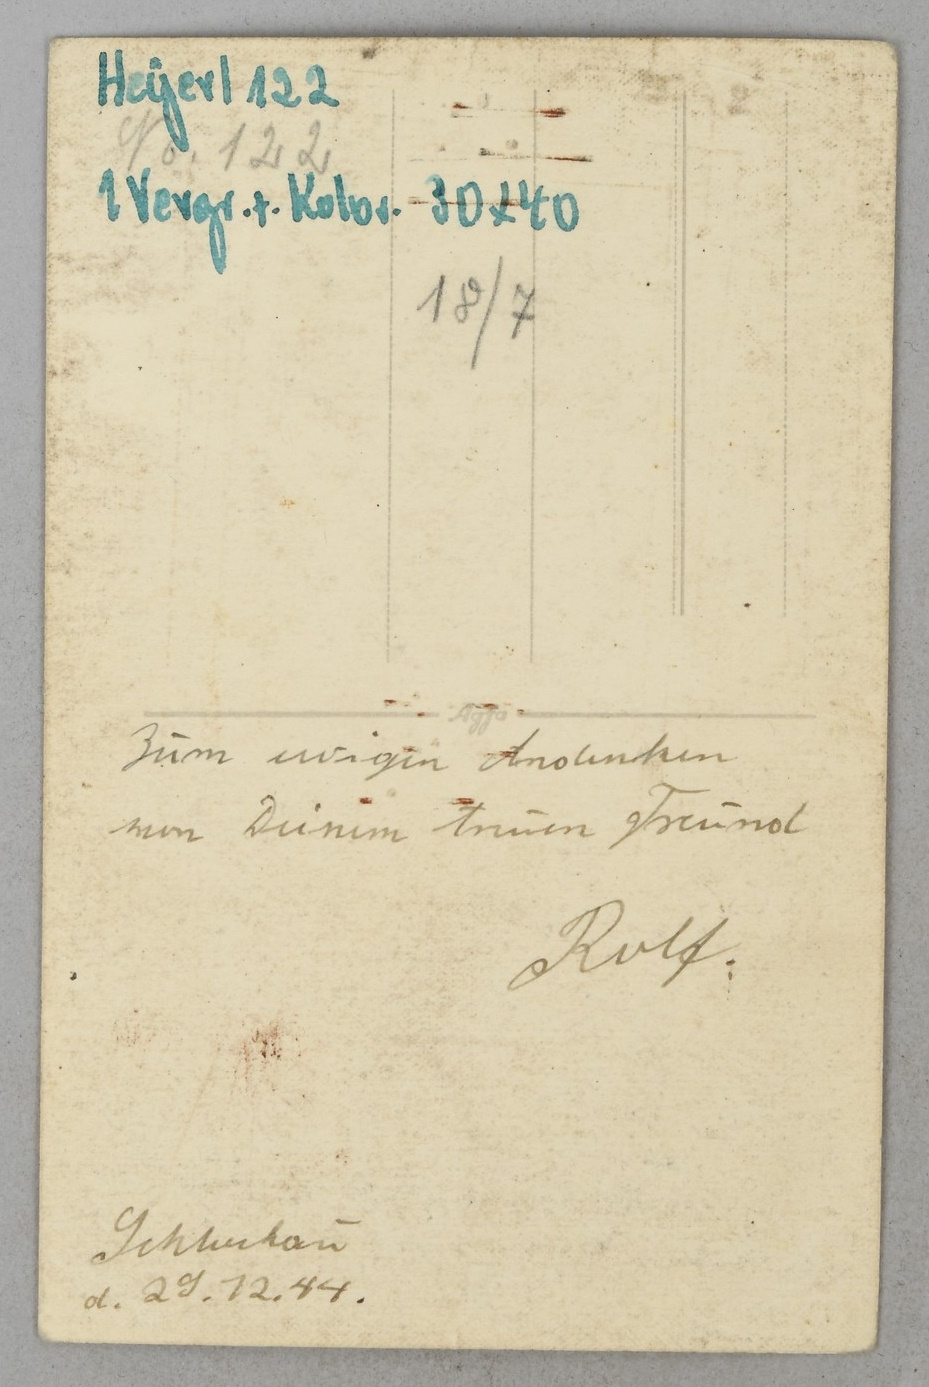 Heijerl 122
No. 122
1 Vergr. + Kolor. 30x40
18/7
Agfa
Zum ewigen Andenken
von Deinem treuen Freund
Rolf.
d. 29.12.44.